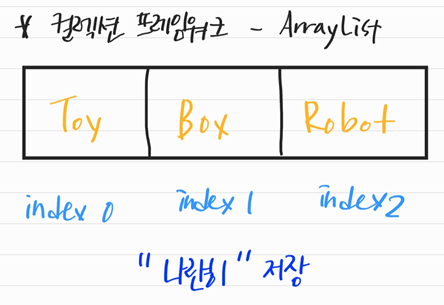 * 컬렉션 프레임워크 - ArrayList
Toy Box Robot
index 0 index 1 index 2
"나란히" 저장